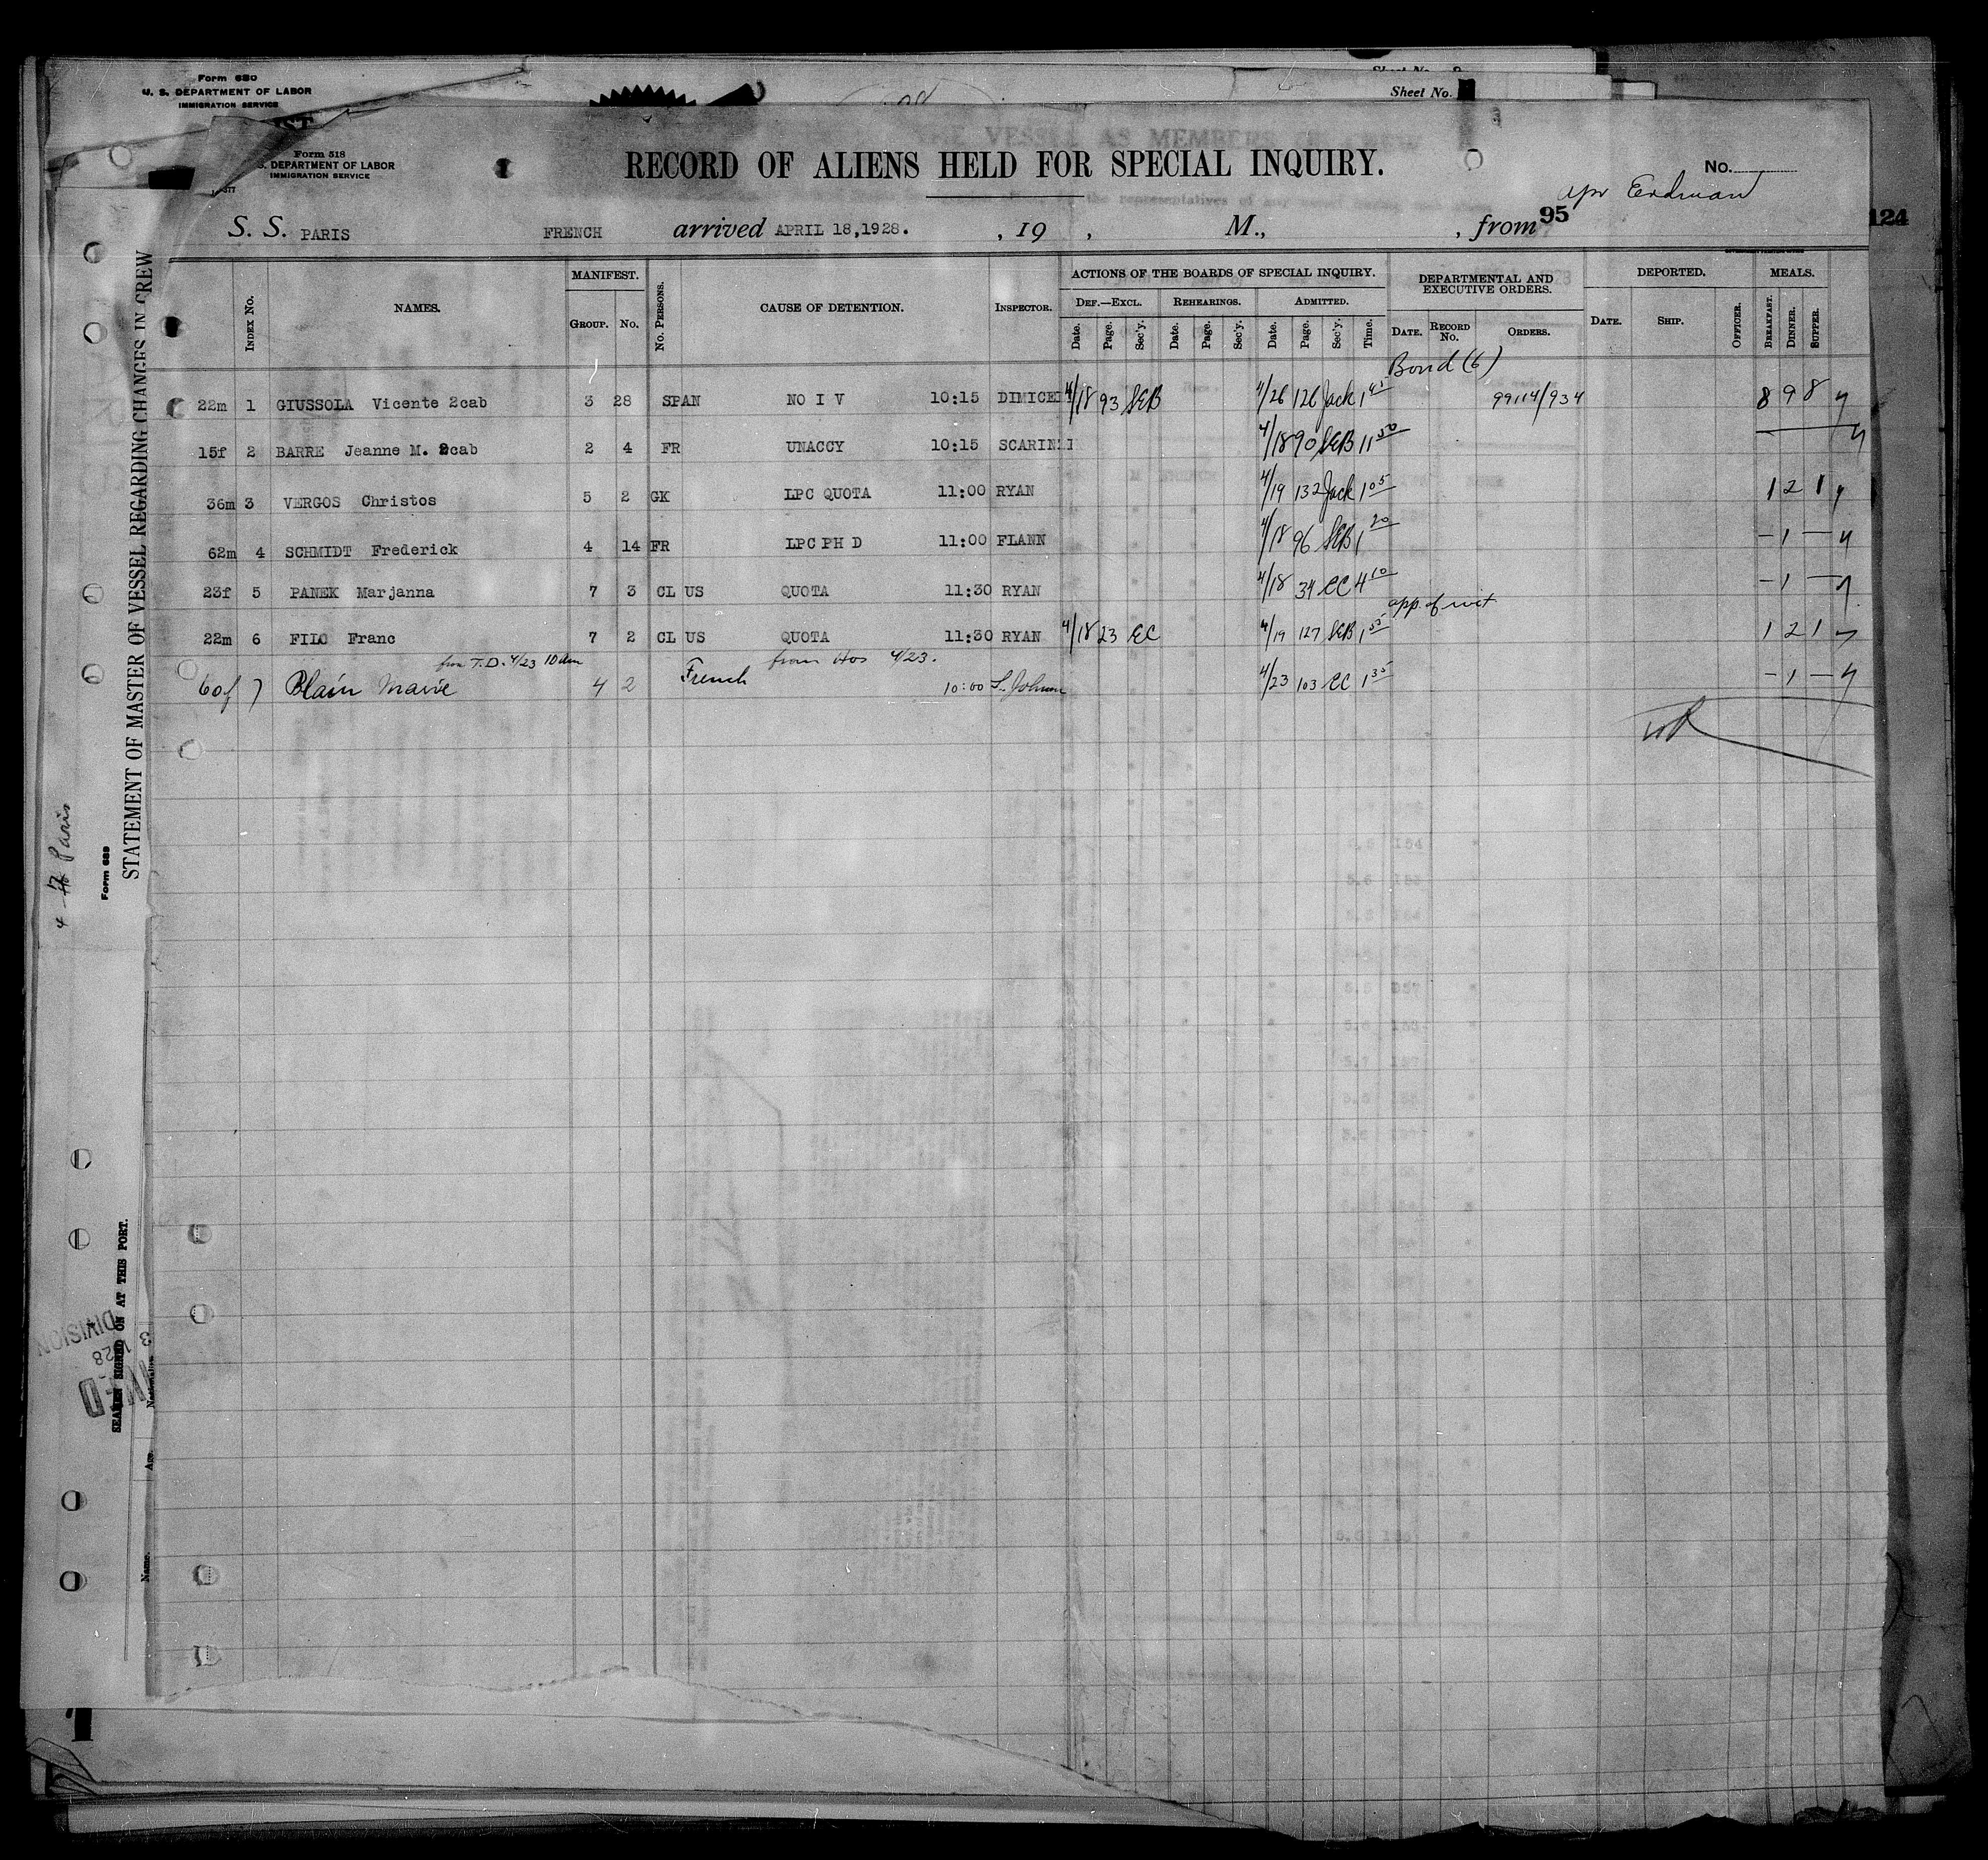 Form 680
U. S. DEPARTMENT OF LABOR
IMMIGRATION SERVICE
Sheet No.
Form 518
S. DEPARTMENT OF LABOR
IMMIGRATION SERVICE
RECORD OF ALIENS HELD FOR SPECIAL INQUIRY.
No.
Erdman
S. S. PARIS FRENCH arrived APRIL 18,1928. , 19 , M., , from 95
124
INDEX No. NAMES. MANIFEST. GROUP. No. No. PERSONS. CAUSE OF DETENTION. INSPECTOR. ACTIONS OF THE BOARDS OF SPECIAL INQUIRY. DEPARTMENTAL AND EXECUTIVE ORDERS. DEPORTED. MEALS.
DEF.—EXCL. REHEARINGS. ADMITTED.
Date. Page. Sec'y. Date. Page. Sec'y. Date. Page. Sec'y. Time. DATE. RECORD No. ORDERS. DATE. SHIP. OFFICER. BREAKFAST. DINNER. SUPPER.
Bond (6)
22m 1 GIUSSOLA Vicente 2cab 3 28 SPAN NO I V 10:15 DIMICELI 4/18 93 SEB 4/26 126 Jack 1 45 99114/934 8 9 8
15f 2 BARRE Jeanne M. 2cab 2 4 FR UNACCY 10:15 SCARINZI 4/18 90 SEB 11 50
36m 3 VERGOS Christos 5 2 GK LPC QUOTA 11:00 RYAN 4/19 132 Jack 1 05 1 2 1
62m 4 SCHMIDT Frederick 4 14 FR LPC PH D 11:00 FLANN 4/18 96 SEB 1 20 – 1 –
23f 5 PANEK Marjanna 7 3 CL US QUOTA 11:30 RYAN 4/18 34 EC 4 10 – 1 –
app. of
22m 6 FILC Franc 7 2 CL US QUOTA 11:30 RYAN 4/18 23 EC 4/19 127 SEB 1 55 1 2 1
from T.D. 4/23 10 am from Hos 4/23.
60f 7 Blain Marie 4 2 French 10:00 L. Johnson 4/23 103 EC 1 35 – 1 –
STATEMENT OF MASTER OF VESSEL REGARDING CHANGES IN CREW
Form 689
Paris
SEAMEN SIGNED ON AT THIS PORT.
DIVISION
Name. Age. Nationality.